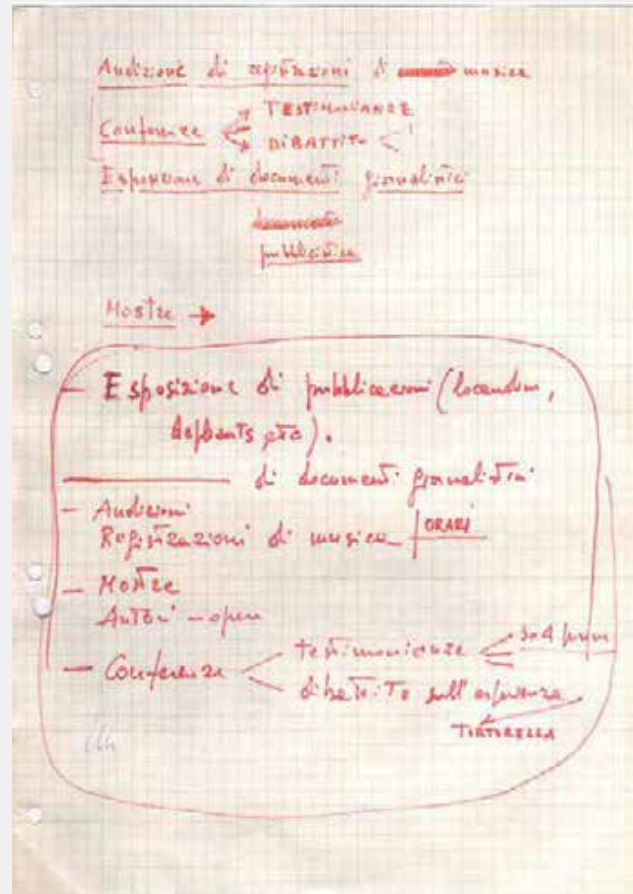 Audizione di registrazioni di musica
TESTIMONIANZE
Conferenze
DIBATTITO
Esposizione di documenti giornalistici
pubblicistica
Mostre →
— Esposizione di pubblicazioni (locandine,
depliants, etc).
——— di documenti giornalistici
— Audizioni
Registrazioni di musica ORARI
— Mostre
Autori - opere
testimonianze 3 o 4
— Conferenze
dibattito sull'esperienza
TORTORELLA